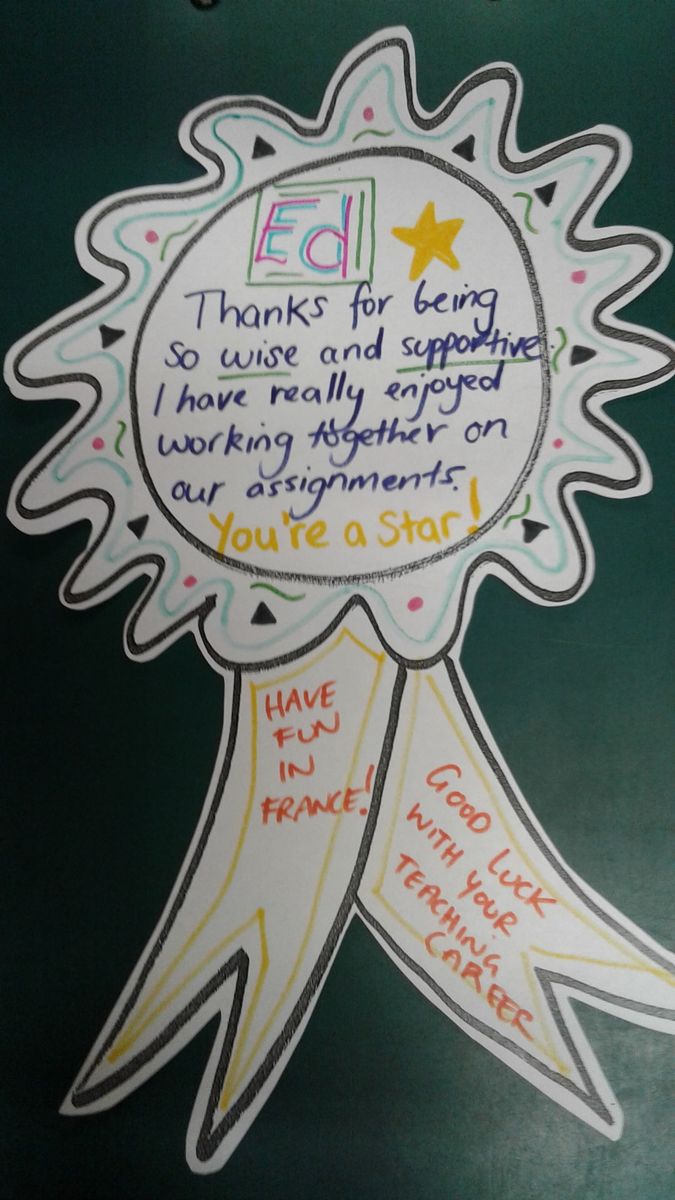 Ed
Thanks for being
so wise and supportive.
I have really enjoyed
working together on
our assignments.
You're a Star!
HAVE
FUN
IN
FRANCE!
GOOD LUCK
WITH YOUR
TEACHING
CAREER